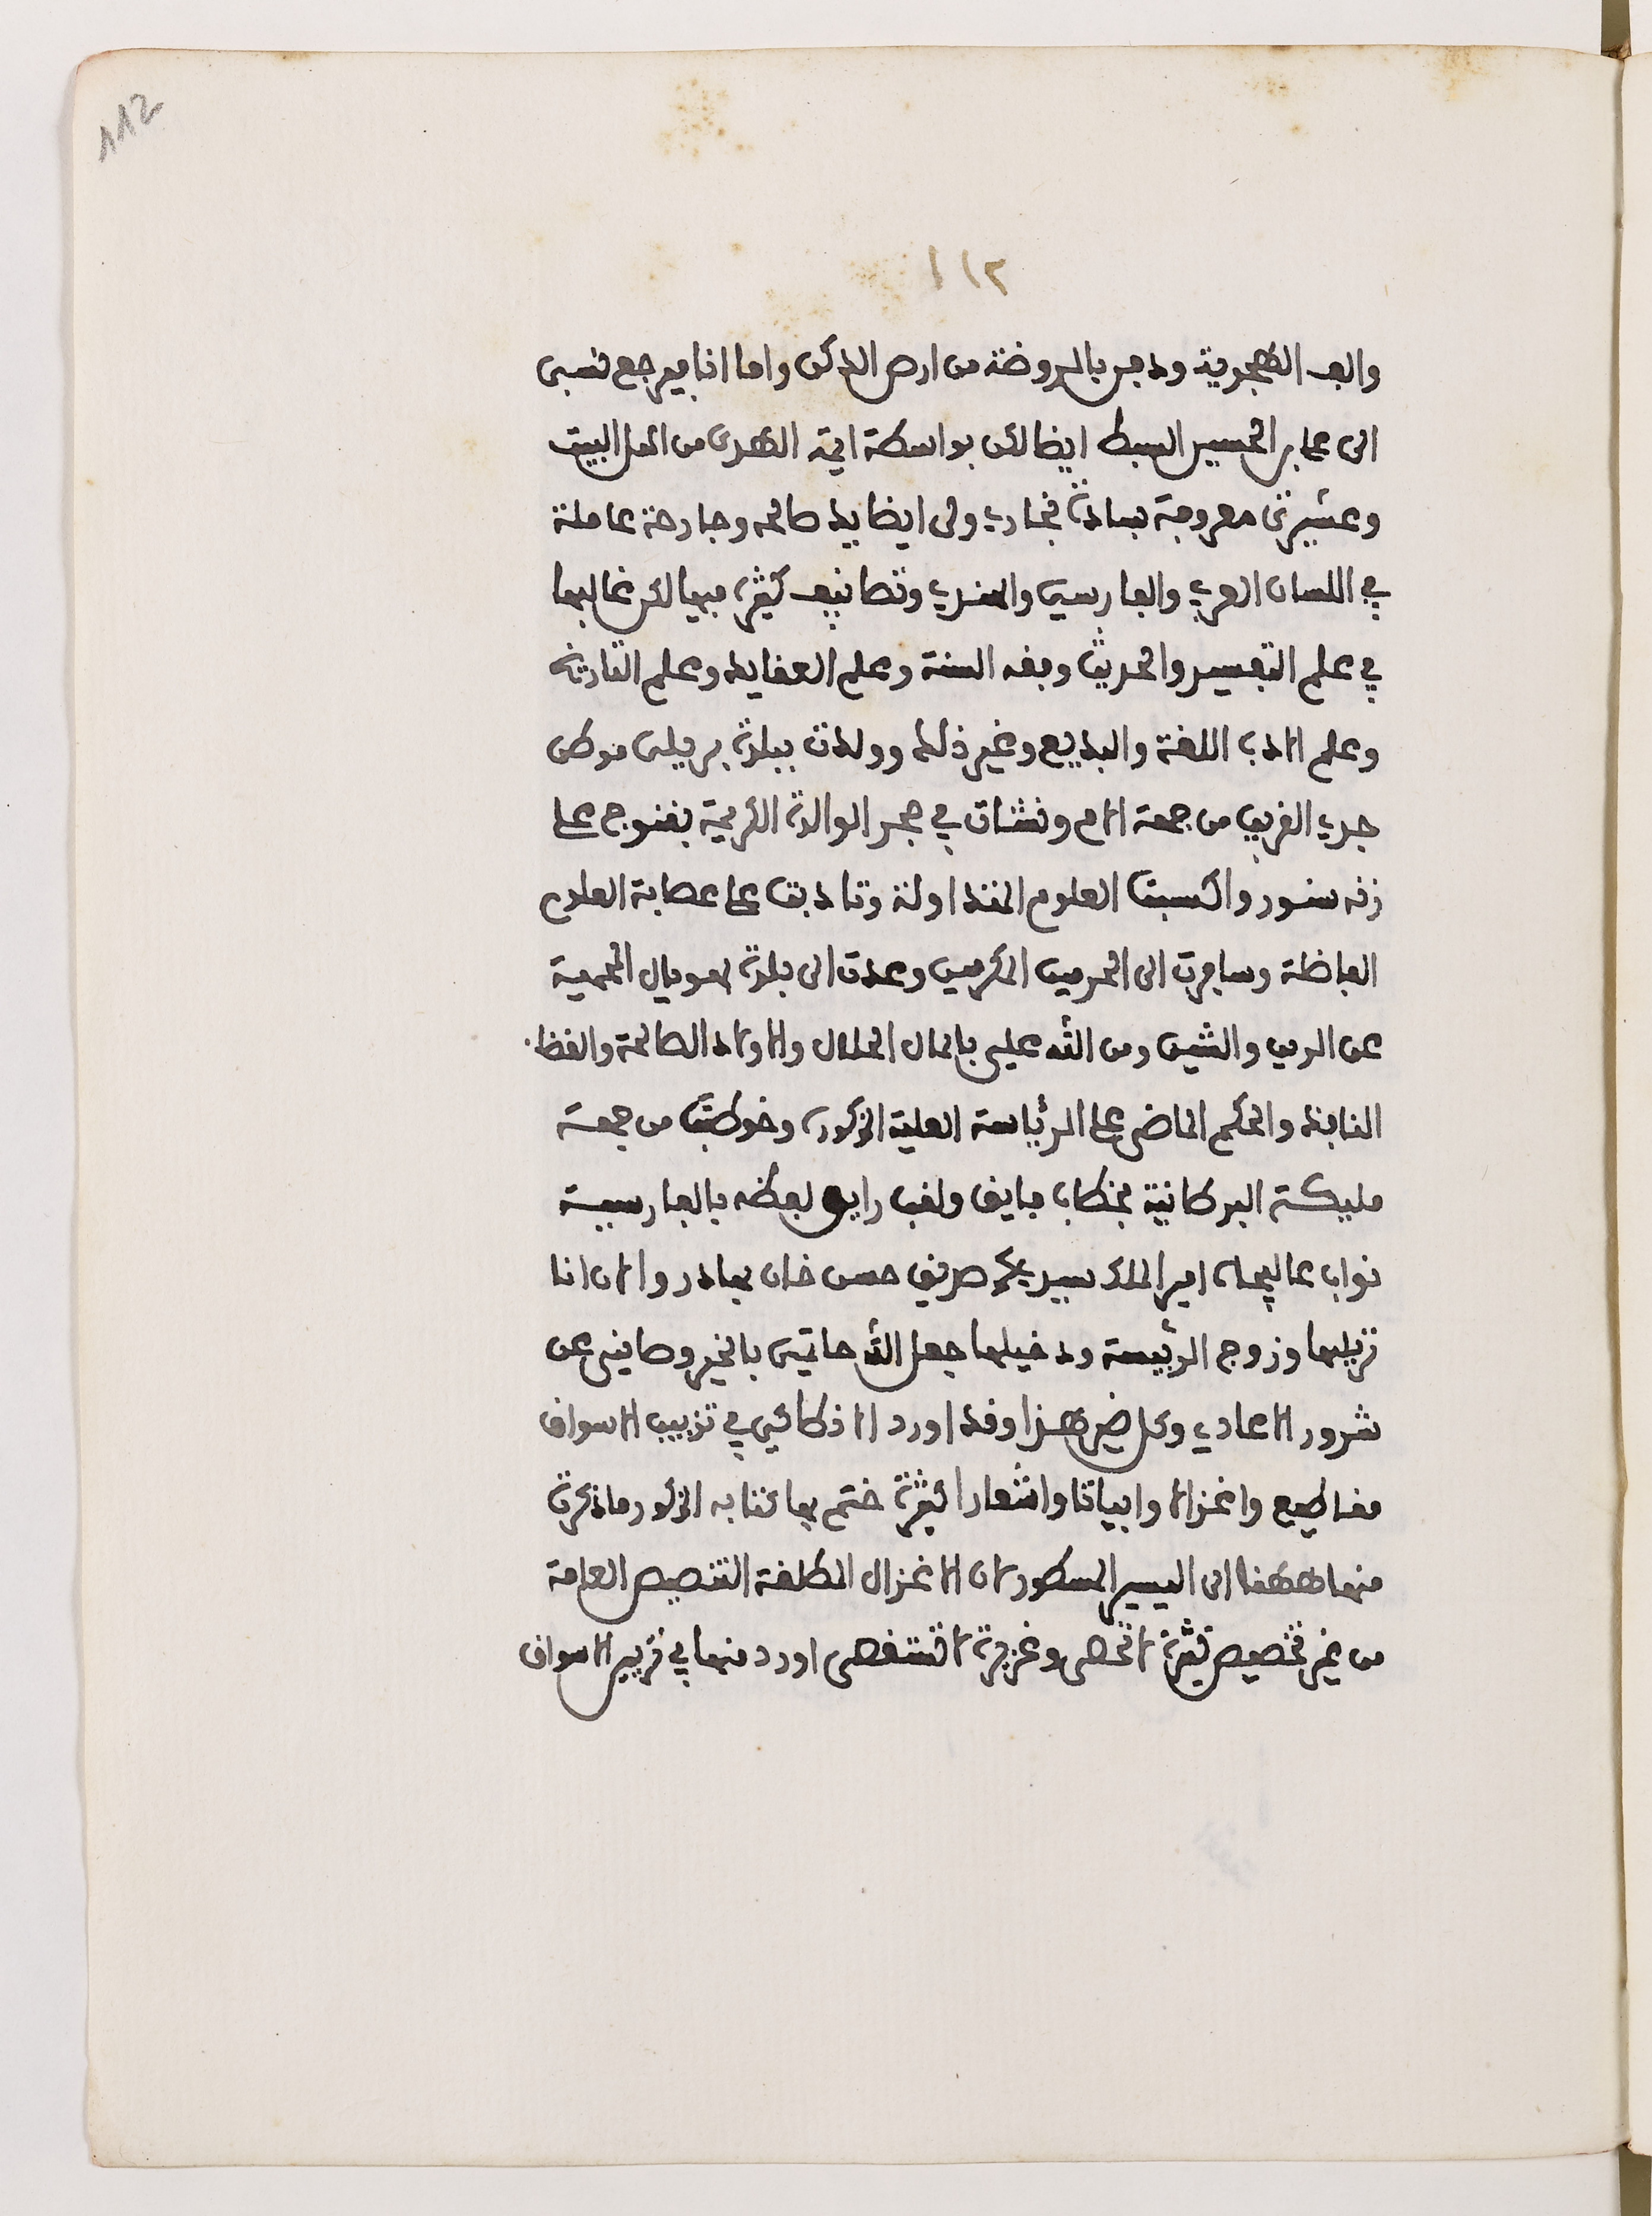 112
١١٢
والف الهجرية ودفن بالروضة من ارض الدكن واما انا فيرجع نسبى
الى على بن الحسين السبط ايضا لكن بواسطة ايمة الهدى من اهل البيت
وعشيرتى معروفة بسادة بخارى ولى ايضا يد صالحه وجارحة عاملة
في اللسان العربي والفارسي والهندي وتصانيف كثيرة فيها لكن غالبها
في علم التفسير والحديث وفقه السنة وعلم العقايد وعلم التاريخ
وعلم الادب اللغة والبديع وغير ذلك وولدت ببلدة بريلى موطن
جدي القريب من جهة الام ونشات في حجر الوالدة الكريمة بقنوج على
زنه سنور واكتسبت العلوم المتداولة وتادبت على عصابة العلوم
الفاضلة وسافرت الى الحرمين المكرمين وعدت الى بلدة بهوپال المحمية
عن الرين والشين ومن الله علي بالمال الحلال والاولاد الصالحة والقضا
النافذ والحكم الماضى على الرئاسة العلية المذكورة وخوطبت من جهة
مليكة البرطانية بخطاب فايق ولقب رايق لفظه بالفارسية
نواب عاليجاه امير الملك سيد محمد صديق حسن خان بهادر والان انا
نزيلها وزوج الرئيسة ودخيلها جعل الله خاتمتى بالخير وصاننى عن
شرور الاعادي وكل ضير هذا وقد اورد الانطاكي في تزيين الاسواق
مقاطيع واغزالا وابياتا واشعارا كثيرة ختم بها كتابه المذكور ماذكرت
منها ههنا الى اليسير المسطور لان الاغزال المطلقة التنصيص العامة
من غير تخصيص كثيرة لا تحصى وغزيرة لا تستقصى اورد منها في تزيين الاسواق